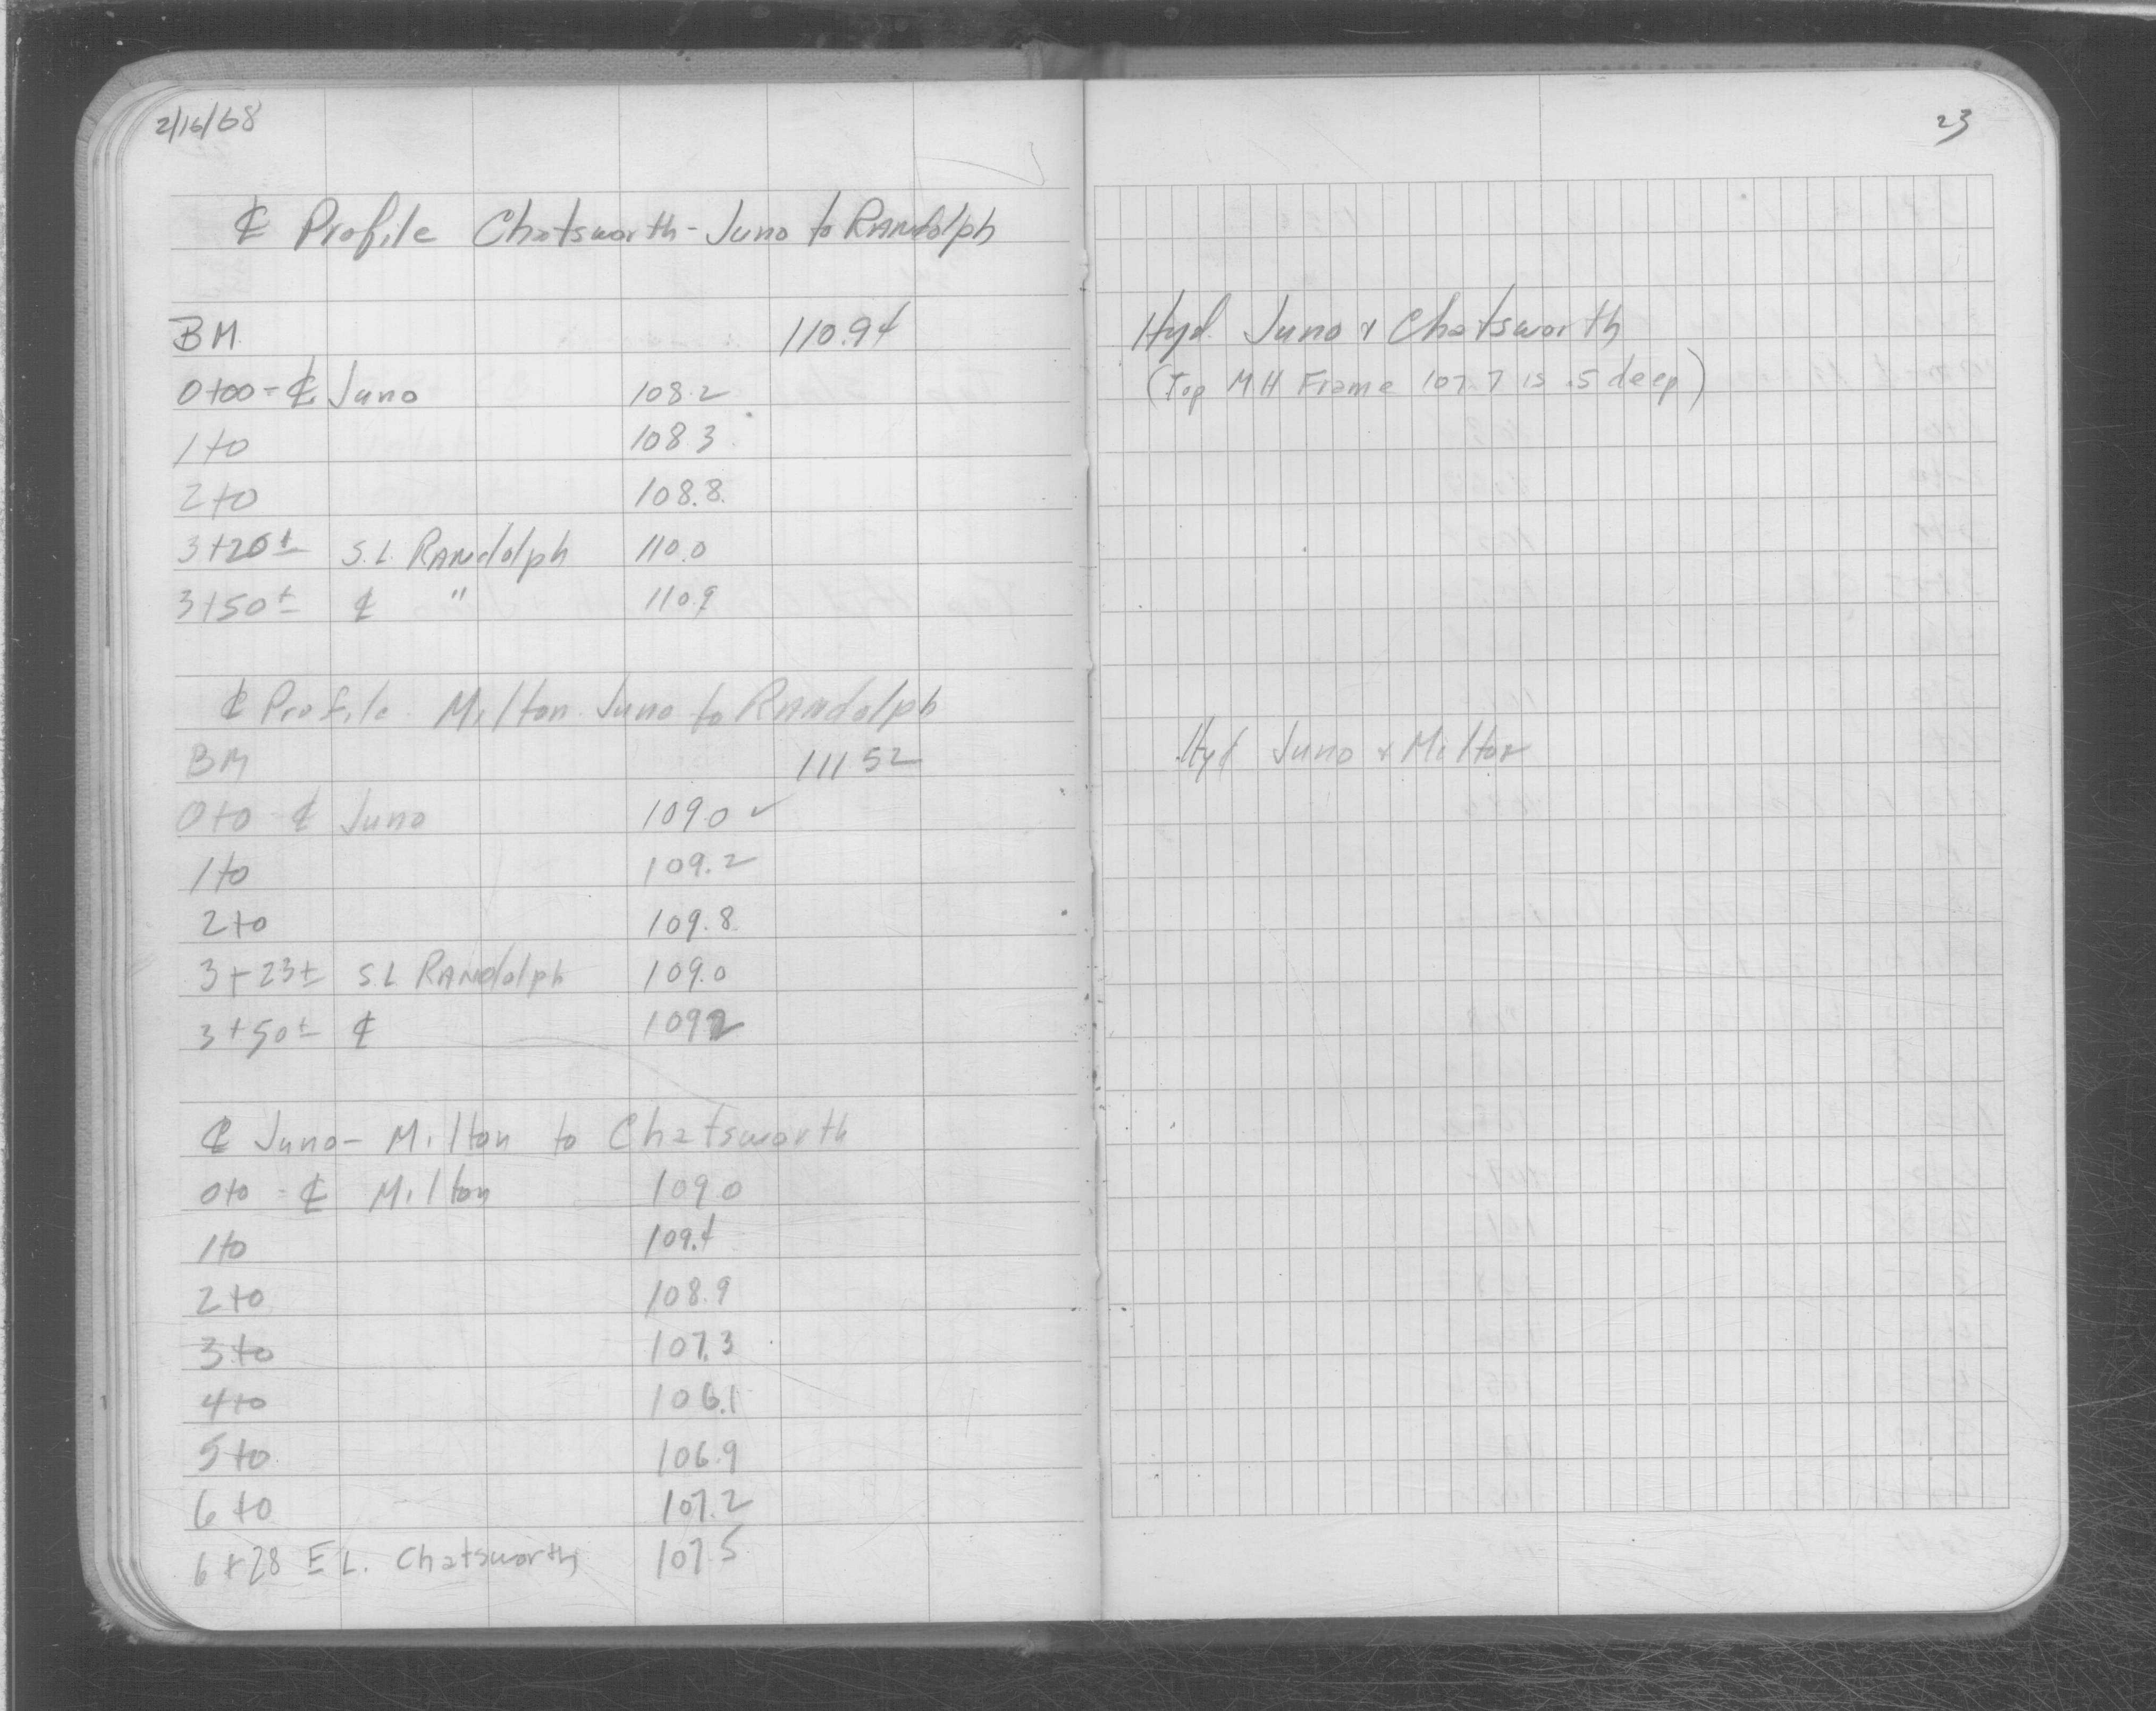 2/16/68
23
℄ Profile Chatsworth - Juno to Randolph
BM 110.94 Hyd. Juno & Chatsworth
0+00 = ℄ Juno 108.2 (Top M.H Frame 107.7 is .5 deep)
1+0 108.3
2+0 108.8
3+20± S.L. Randolph 110.0
3+50± ℄ " 110.9
℄ Profile Milton Juno to Randolph
BM 111 52 Hyd Juno & Milton
0+0 ℄ Juno 109.0 ✓
1+0 109.2
2+0 109.8
3+23± S.L Randolph 109.0
3+50± ℄ 109 2
℄ Juno - Milton to Chatsworth
0+0 = ℄ Milton 109 0
1+0 109.4
2+0 108.9
3+0 107.3
4+0 106.1
5+0 106.9
6+0 107.2
6+28 E L. Chatsworth 107.5